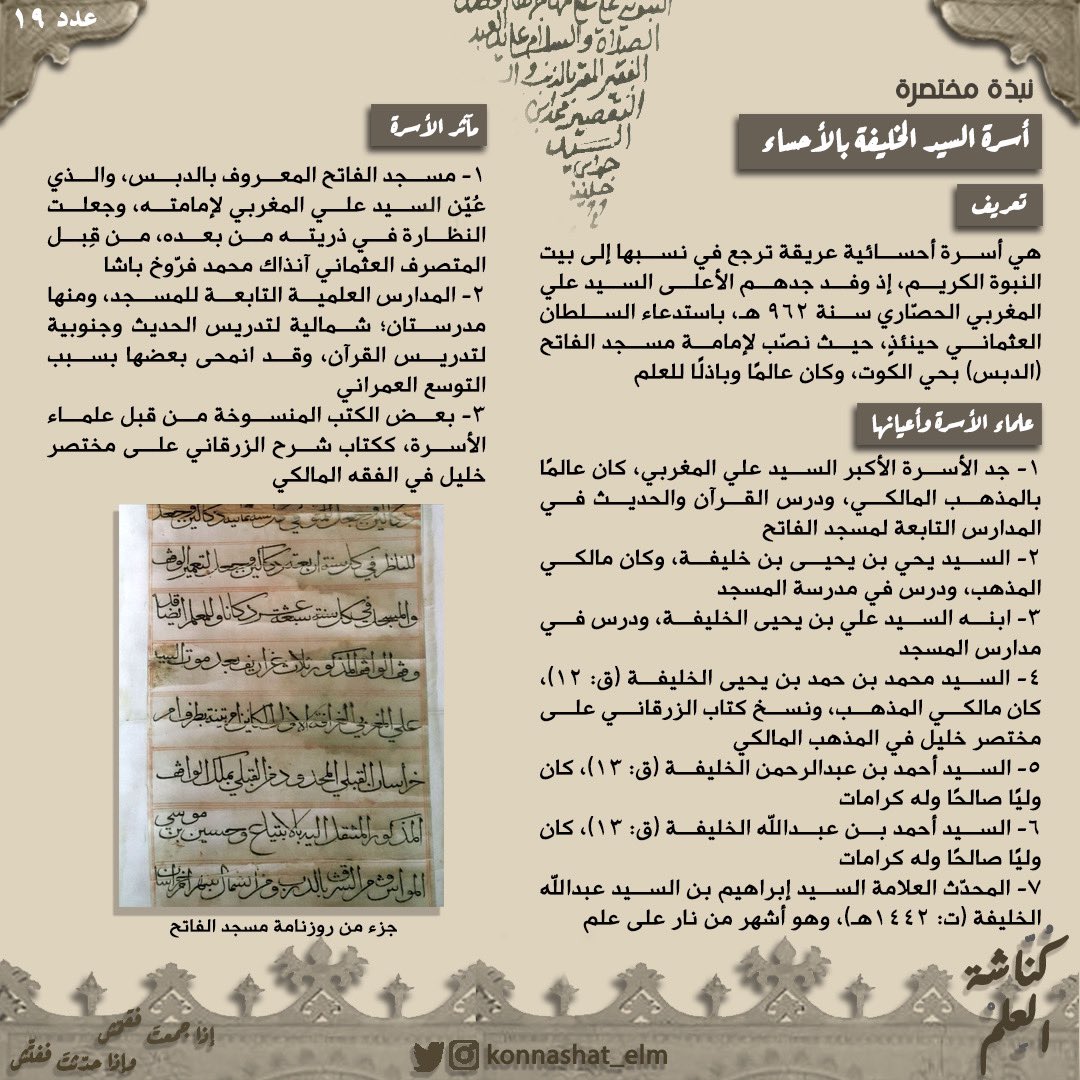 عدد ١٩
نبذة مختصرة
أسرة السيد الخليفة بالأحساء
تعريف
هي أسرة أحسائية عريقة ترجع في نسبها إلى بيت
النبوة الكريم، إذ وفد جدهم الأعلى السيد علي
المغربي الحصّاري سنة ٩٦٢ هـ، باستدعاء السلطان
العثماني حينئذٍ، حيث نصّب لإمامة مسجد الفاتح
(الدبس) بحي الكوت، وكان عالمًا وباذلًا للعلم
علماء الأسرة وأعيانها
١- جد الأسرة الأكبر السيد علي المغربي، كان عالمًا
بالمذهب المالكي، ودرس القرآن والحديث في
المدارس التابعة لمسجد الفاتح
٢- السيد يحي بن يحيى بن خليفة، وكان مالكي
المذهب، ودرس في مدرسة المسجد
٣- ابنه السيد علي بن يحيى الخليفة، ودرس في
مدارس المسجد
٤- السيد محمد بن حمد بن يحيى الخليفة (ق: ١٢)،
كان مالكي المذهب، ونسخ كتاب الزرقاني على
مختصر خليل في المذهب المالكي
٥- السيد أحمد بن عبدالرحمن الخليفة (ق: ١٣)، كان
وليًا صالحًا وله كرامات
٦- السيد أحمد بن عبدالله الخليفة (ق: ١٣)، كان
وليًا صالحًا وله كرامات
٧- المحدّث العلامة السيد إبراهيم بن السيد عبدالله
الخليفة (ت: ١٤٤٢هـ)، وهو أشهر من نار على علم
مآثر الأسرة
١- مسجد الفاتح المعروف بالدبس، والذي
عُيّن السيد علي المغربي لإمامته، وجعلت
النظارة في ذريته من بعده، من قِبل
المتصرف العثماني آنذاك محمد فرّوخ باشا
٢- المدارس العلمية التابعة للمسجد، ومنها
مدرستان؛ شمالية لتدريس الحديث وجنوبية
لتدريس القرآن، وقد انمحى بعضها بسبب
التوسع العمراني
٣- بعض الكتب المنسوخة من قبل علماء
الأسرة، ككتاب شرح الزرقاني على مختصر
خليل في الفقه المالكي
الصلاة والسلام على يد العبد
الفقير المقر بالذنب و
التقصير محمد ابن
السيد
علي المغربي
خراسان القبلي المحدود من القبلي بملك الواقف
المذكور المنتقل اليه بالابتياع وحسين بن موسى
جزء من روزنامة مسجد الفاتح
كُنّاشة
العلم
إذا جمعتَ فقمّش
وإذا حدّثتَ ففتّش
konnashat_elm